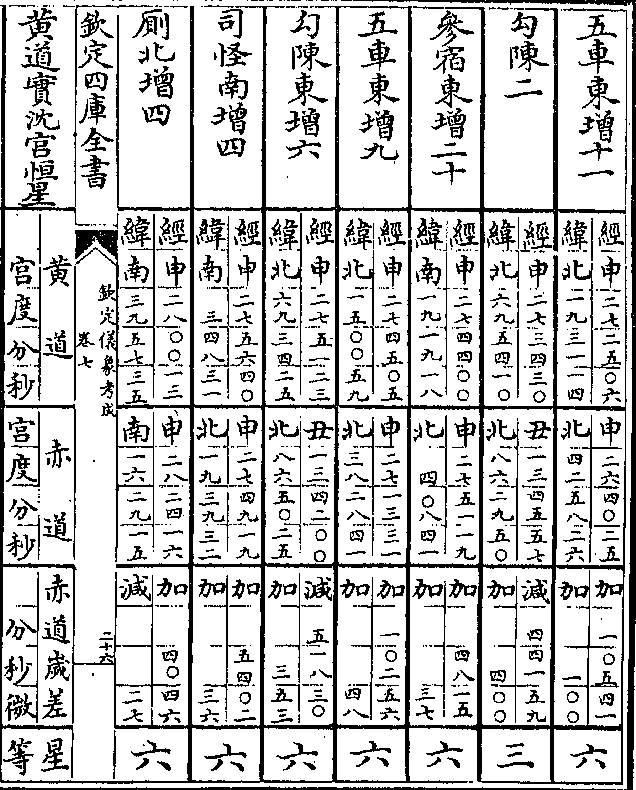 五車東增十一
經 申 二七二五〇六 申 二六四〇二五 加 一〇五四一
緯 北 一九三一一四 北 四二五八二六 加 一〇〇
六
勾陳二
經 申 二七三四三〇 丑 一三四五五七 減 四四一五九
緯 北 六九五四一〇 北 八六二九五〇 加 四〇〇
三
參宿東增二十
經 申 二七四四〇〇 申 二七五一一九 加 四八一五
緯 南 一九一九一八 北 四〇八四一 加 三七
六
五車東增九
經 申 二七四五〇五 申 二七一三三一 加 一〇二五六
緯 北 一五〇〇五九 北 三八二八四一 加 四八
六
勾陳東增六
經 申 二七五一二三 丑 一三四二〇〇 減 五一八三〇
緯 北 六九三四二五 北 八六五〇二五 加 三五三
六
司怪南增四
經 申 二七五六四〇 申 二七四九一九 加 五四〇二
緯 南 三四八三一 北 一九三九三二 加 三六
六
厠北增四
經 申 二八〇〇一三 申 二八二四一六 加 四〇四六
緯 南 三九五七三五 南 一六二九一五 減 二七
六
欽定四庫全書
欽定儀象考成
卷七
二十六
黃道實沈宮恒星
黃道 赤道 赤道歲差 星
宮度分秒 宮度分秒 分秒微 等